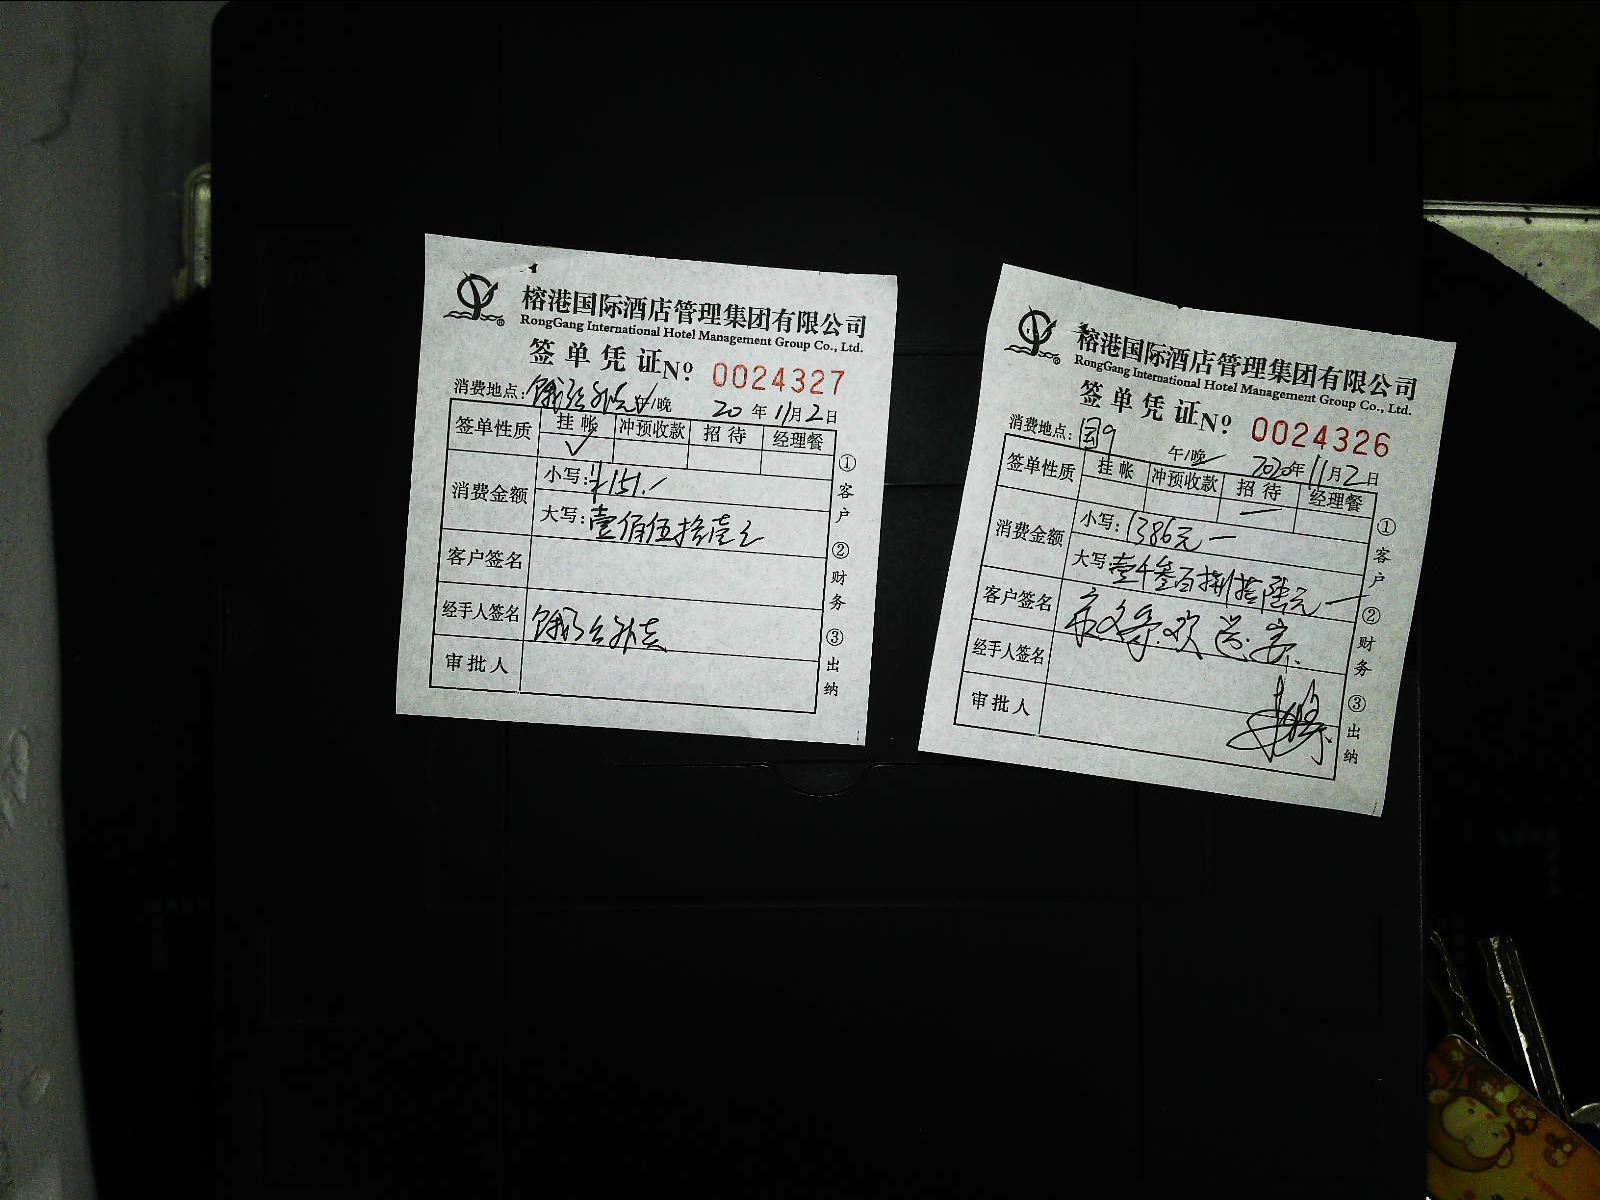 榕港国际酒店管理集团有限公司
RongGang International Hotel Management Group Co., Ltd.
签单凭证 Nº: 0024327
消费地点: 午/晚 20年11月2日
签单性质 挂帐 冲预收款 招待 经理餐
消费金额 小写:¥151.-
大写:壹佰伍拾壹元
客户签名
经手人签名
审批人
①客户 ②财务 ③出纳
榕港国际酒店管理集团有限公司
RongGang International Hotel Management Group Co., Ltd.
签单凭证 Nº: 0024326
消费地点:国9 午/晚 2020年11月2日
签单性质 挂帐 冲预收款 招待 经理餐
消费金额 小写:1386元-
大写:壹千叁百捌拾陆元-
客户签名
经手人签名
审批人
①客户 ②财务 ③出纳